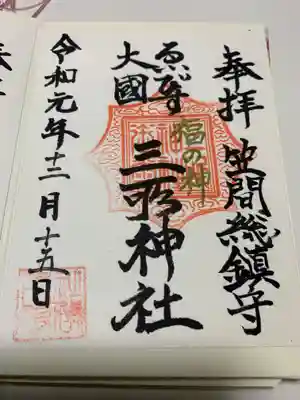 奉拝 笠間総鎮守
ゑびす
大國
福の神
三所神社
令和元年十二月十五日